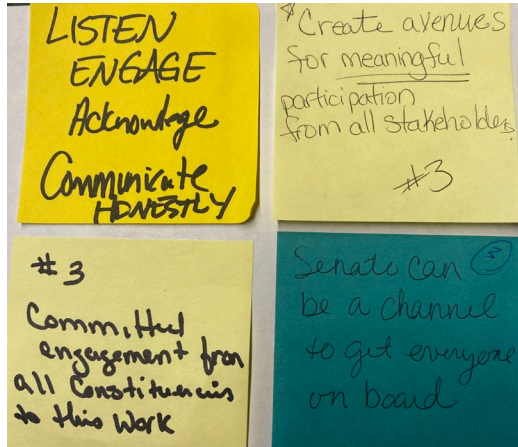 LISTEN
ENGAGE
Acknowledge
Communicate
HONESTLY
*Create avenues
for meaningful
participation
from all stakeholders.
#3
#3
Committed
engagement from
all Constituencies
to this Work
Senate can 3
be a channel
to get everyone
on board